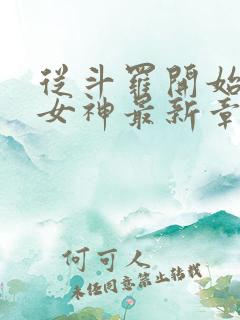 從斗羅開始
女神最新章
何可人
未經同意禁止轉載